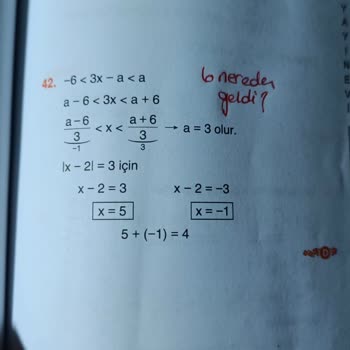 42. -6 < 3x - a < a
6 nereden
geldi?
a - 6 < 3x < a + 6
a-6/3 < x < a+6/3 → a = 3 olur.
-1 3
|x - 2| = 3 için
x - 2 = 3 x - 2 = -3
x = 5 x = -1
5 + (-1) = 4
Y
A
Y
I
N
E
V
İ